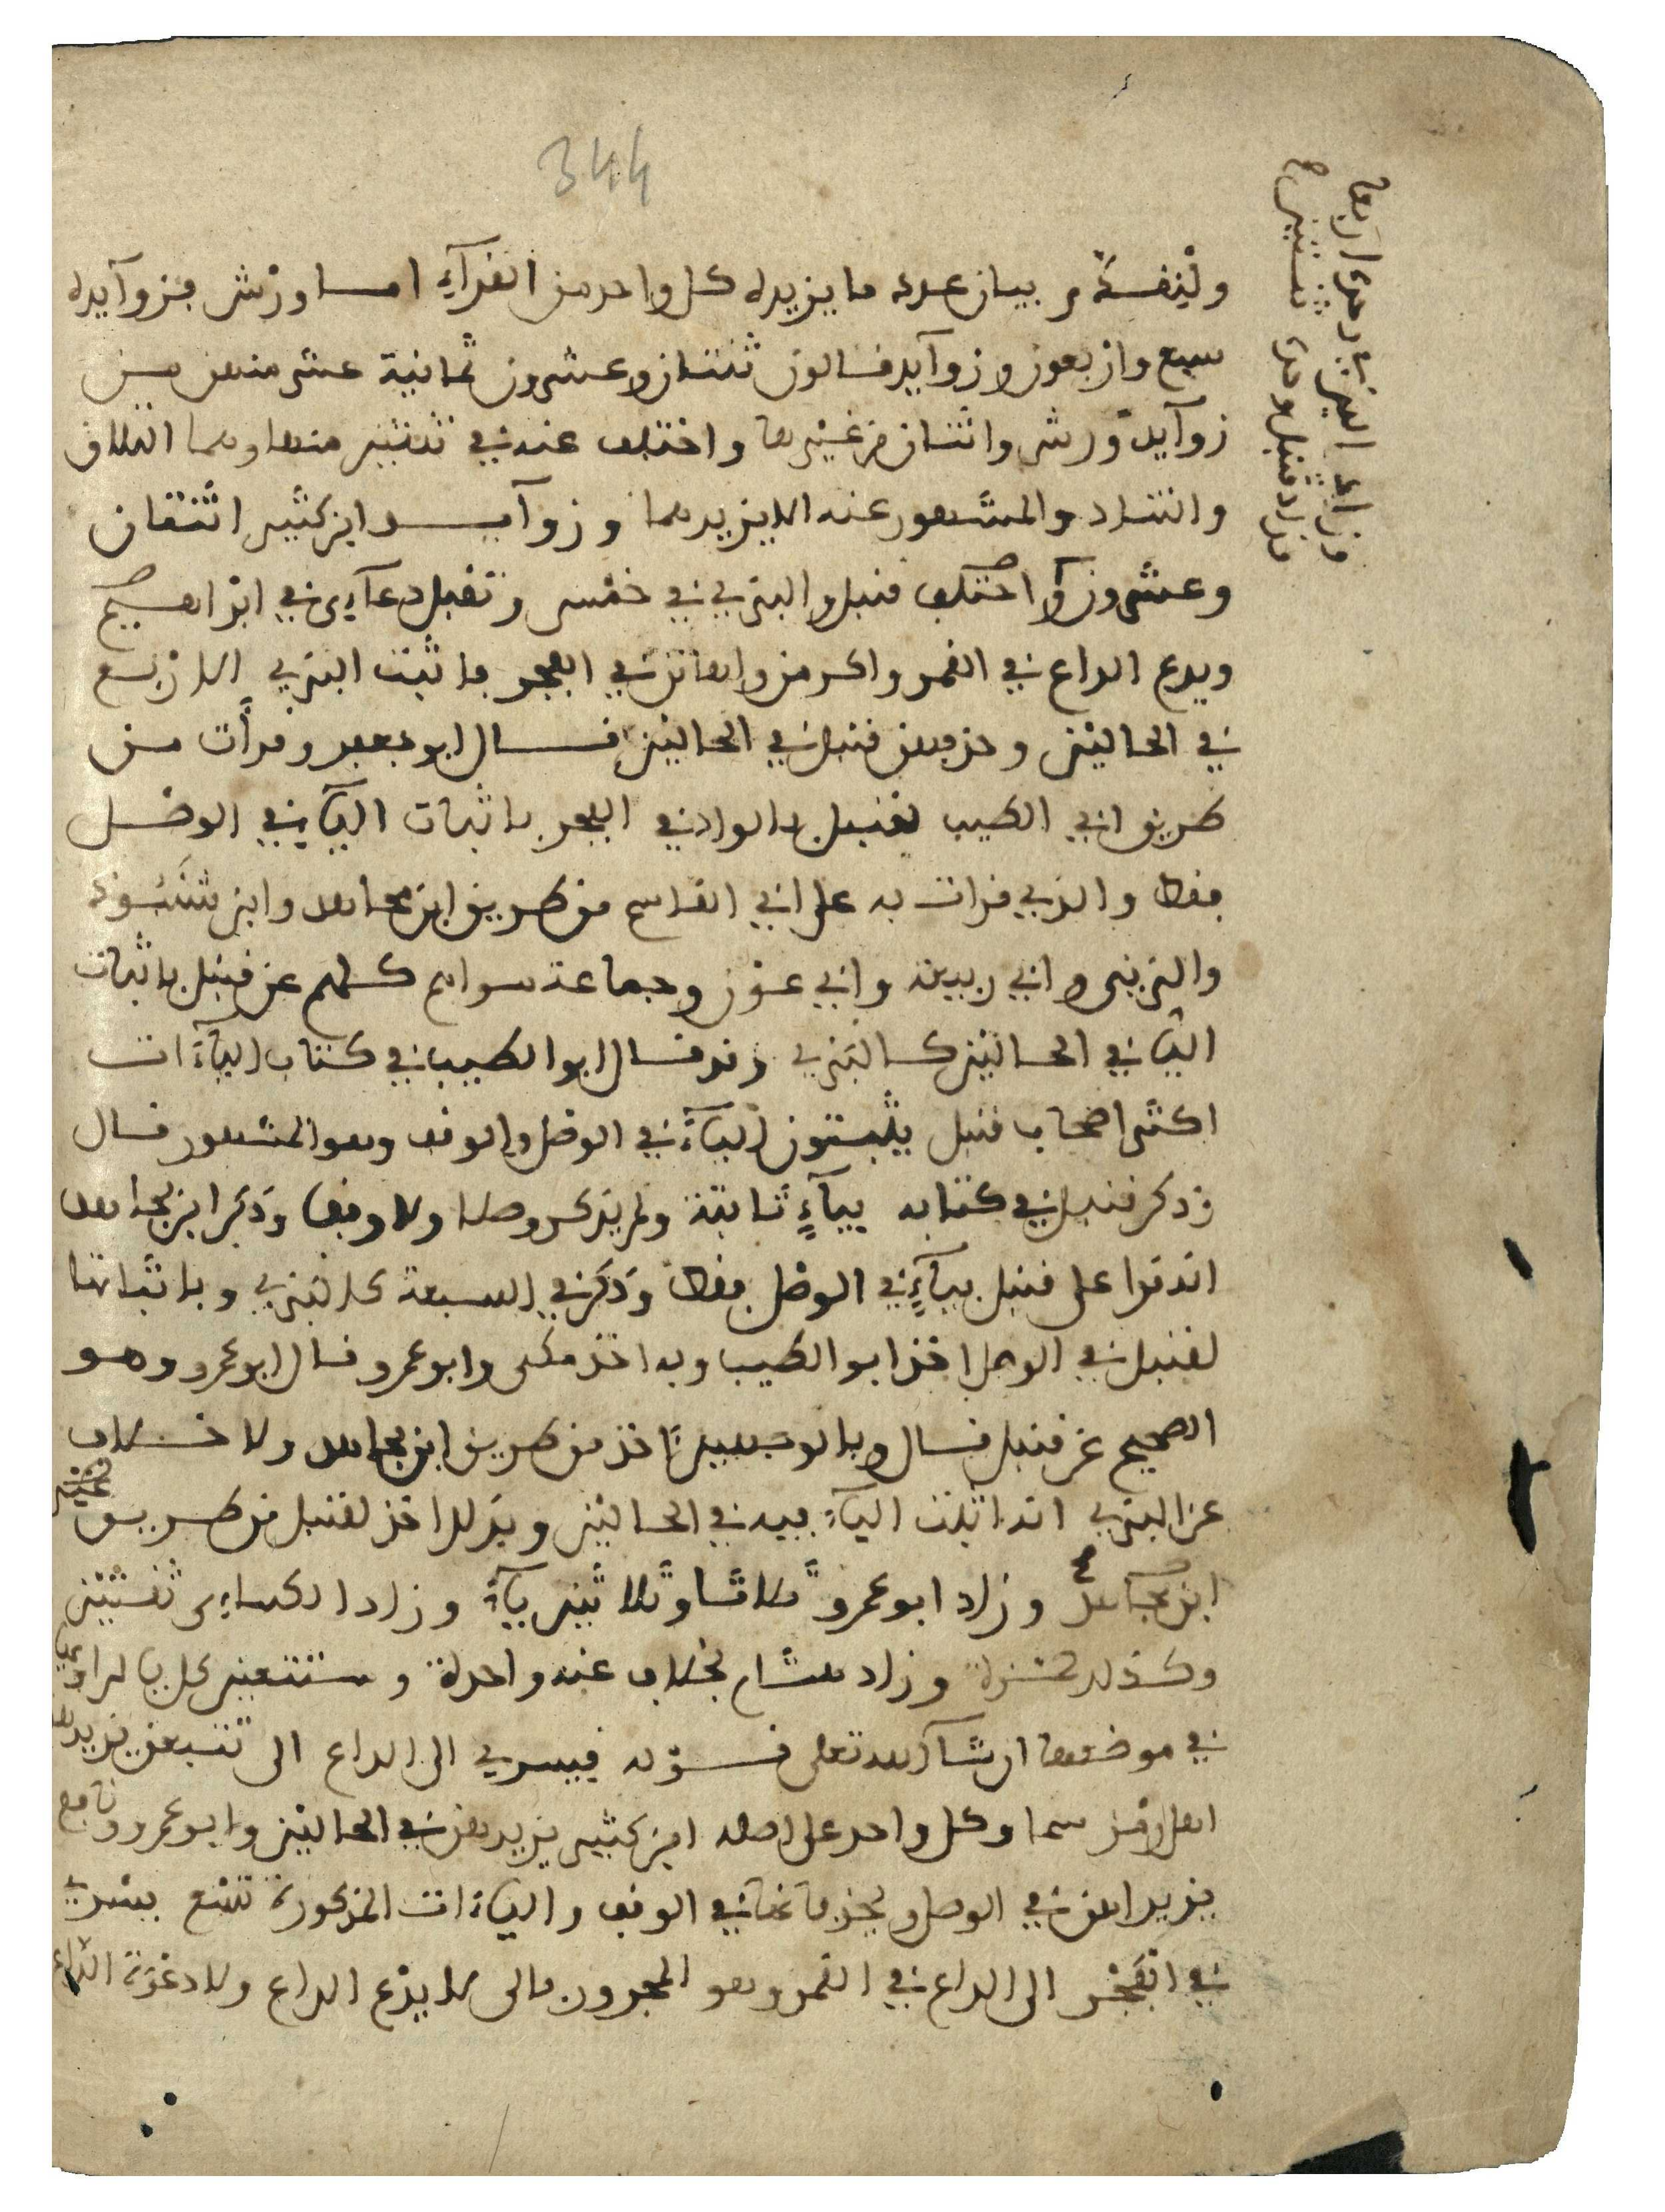 344
ولنقدم بيان عدد ما يزيده كل واحد من القرآء اما ورش فزوآيده
سبع واربعون وزوآيد قالون ثنتان وعشرون ثمانية عشر منهن من
زوآيد ورش واثنتان من غيرها واختلف عنه في ثنتين منها وهما التلاق
والتناد والمشهور عنه الا يزيدهما وزوآيد ابن كثير اثنتان
وعشرون واختلف قنبل والبزي في خمس وتقبل دعآءي في ابراهيم
ويدع الداع في القمر واكرمن واهانن في الفجر فاثبت البزي الاربع
في الحالين وحذفهن قنبل في الحالين قال ابو جعفر وقرأت من
طريق ابي الطيب لقنبل بالواد في الفجر باثبات اليآء في الوصل
فقط والذي قرات به على ابي القاسم من طريق ابن مجاهد وابن شنبوذ
والزينبي وابي ربيعة وابي عون وجماعة سواهم كلهم عن قنبل باثبات
اليآء في الحالين كالبزي وقد قال ابو الطيب في كتاب اليآءات
اكثر اصحاب قنبل يثبتون اليآء في الوصل والوقف وهو المشهور قال
وذكر قنبل في كتابه بيآء ثابتة ولم يذكر وصلا ولا وقفا وذكر ابن مجاهد
انه قرا على قنبل بيآء في الوصل فقط وذكر في السبعة كالبزي وباثباتها
لقنبل في الوصل اخذ ابو الطيب وبه اخذ مكي وابو عمرو قال ابو عمرو وهو
الصحيح عن قنبل قال وبالوجهين ناخذ من طريق ابن مجاهد ولا خلاف
عن البزي انه اثبت اليآء فيه في الحالين وبذلك اخذ لقنبل من طريق غير
ابن مجاهد وزاد ابو عمرو ثلاثا وثلاثين يآء وزاد الكساءي ثنتين
وكذلك حمزة وزاد هشام بخلاف عنه واحدة وستتعين كل يا لراويها
في موضعها ان شآء الله تعلى قوله فيسري الى الداع الى تتبعن يزيدها
اهل رمز سما وكل واحد على اصله ابن كثير يزيدهن في الحالين وابو عمرو ونافع
يزيدانهن في الوصل ويحذفانها في الوقف واليآءات المذكورة تسع يسري
في الفجر الى الداع في القمر وهو المجرور بالى لا يدع الداع ولا دعوة الداع